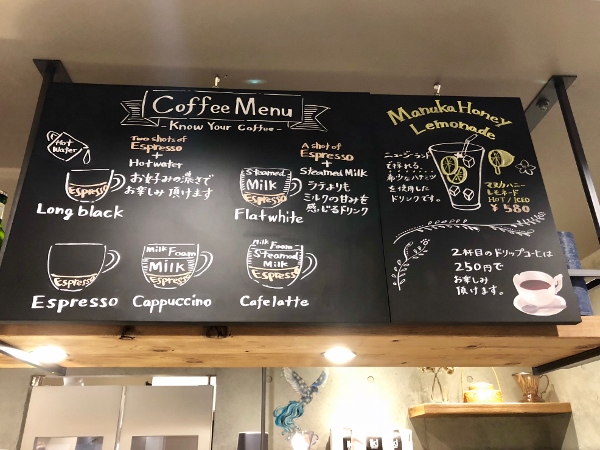 Coffee Menu
- Know Your Coffee -
Hot
Water
Two shots of
Espresso
+
Hot water
お好みの濃さで
お楽しみ頂けます
Espresso
Long black
A shot of
Espresso
+
Steamed Milk
ラテよりも
ミルクの甘みを
感じるドリンク
Steamed
Milk
Espresso
Flat white
Espresso
Espresso
Milk Foam
Milk
Espresso
Cappuccino
Milk Foam
Steamed
Milk
Espresso
Cafe latte
Manuka Honey
Lemonade
ニュージーランド
で採れる
希少なハチミツ
を使用した
ドリンクです。
マヌカハニー
レモネード
HOT / ICED
¥580
2杯目のドリップコーヒーは
250円で
お楽しみ
頂けます。